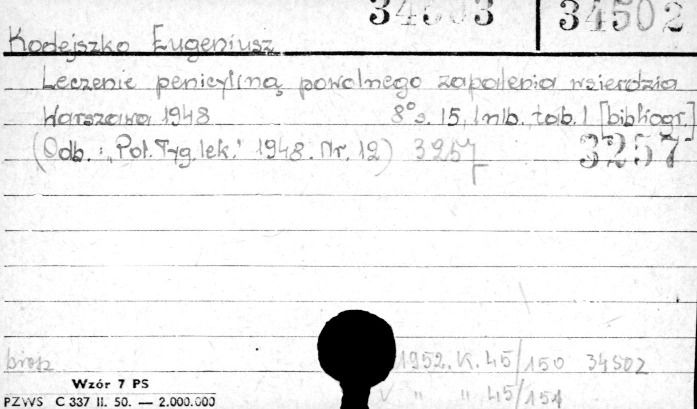 34503 34502
Kodejszko Eugeniusz
Leczenie penicyliną powolnego zapalenia wsierdzia
Warszawa 1948 8° s. 15, 1 nlb. tab. 1 [bibliogr.]
(Odb.: „Pol. Tyg. lek.” 1948. Nr. 12) 3257 3257
brosz 1952. K. 45/150 34502
Wzór 7 PS
V " " 45/151
PZWS C 337 II. 50. — 2.000.000